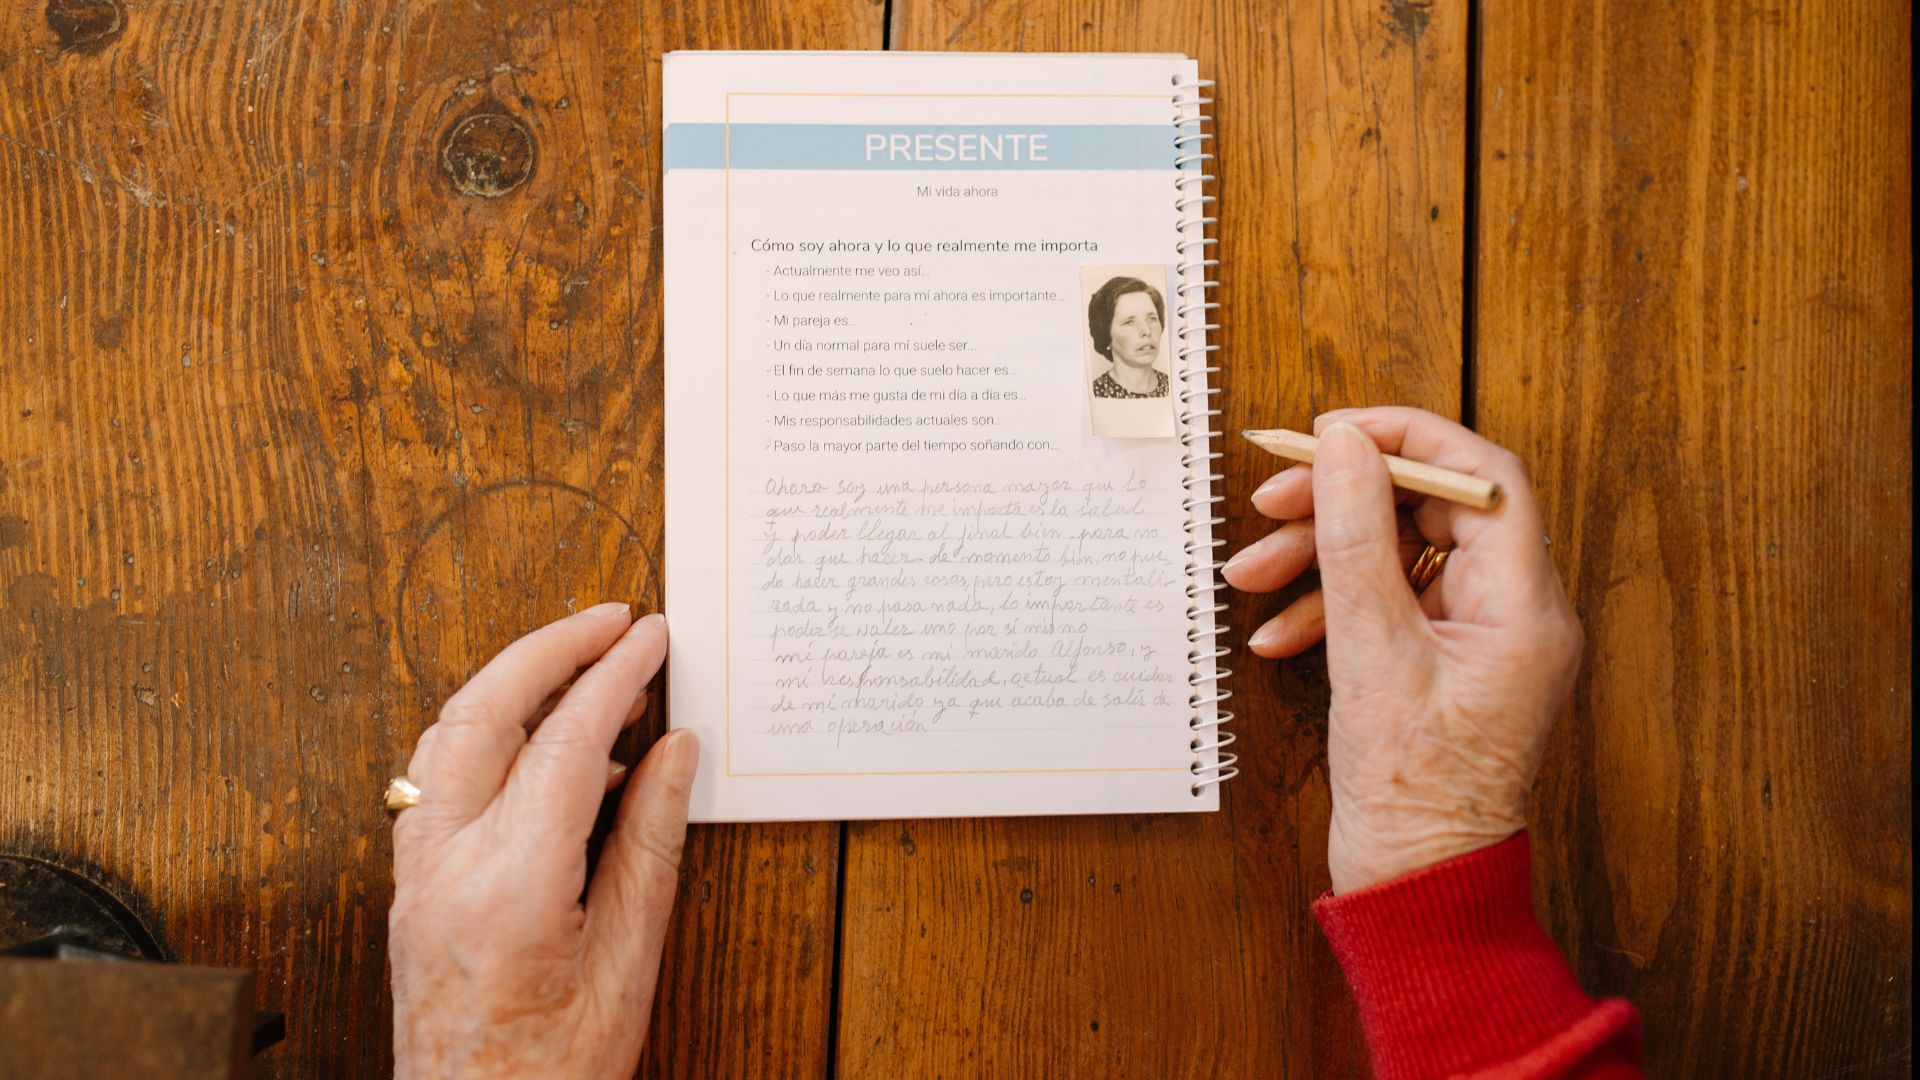 PRESENTE
Mi vida ahora
Cómo soy ahora y lo que realmente me importa
- Actualmente me veo así...
- Lo que realmente para mí ahora es importante...
- Mi pareja es...
- Un día normal para mí suele ser...
- El fin de semana lo que suelo hacer es...
- Lo que más me gusta de mi día a día es...
- Mis responsabilidades actuales son...
- Paso la mayor parte del tiempo soñando con...
Ahora soy una persona mayor que lo
que realmente me importa es la salud
y poder llegar al final bien para no
dar que hacer. de momento bien, no pue-
do hacer grandes cosas, pero estoy mentali-
zada y no pasa nada, lo importante es
poderse valer uno por sí mismo
mi pareja es mi marido Alfonso, y
mi responsabilidad, actual es cuidar
de mi marido ya que acaba de salir de
una operación